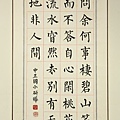 問余何事棲碧山笑
而不答心自閒桃花
流水杳然去別有天
地非人間
中正國小